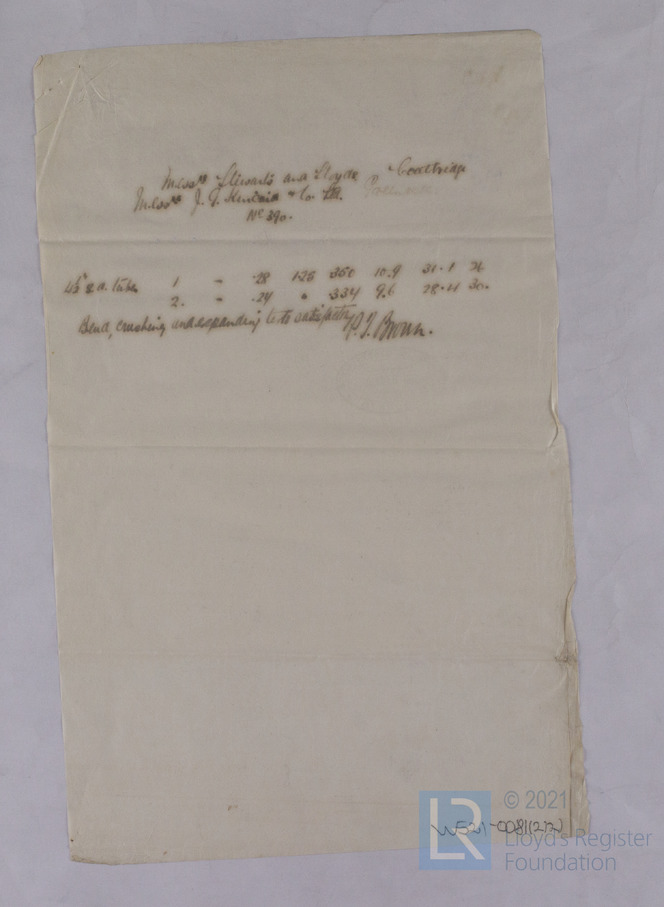 Messrs Stewarts and Lloyds Coatbridge
Messrs J. G. & Co Ltd.
No 390.
tube 1 - .28 1.25 350 10.9 31.1
2. - .24 " 334 9.6 28.4 30.
Bend, crushing and expanding tests satisfactory P. J. Brown.
W521-0081(2/2)
© 2021
Lloyd's Register
Foundation
LR